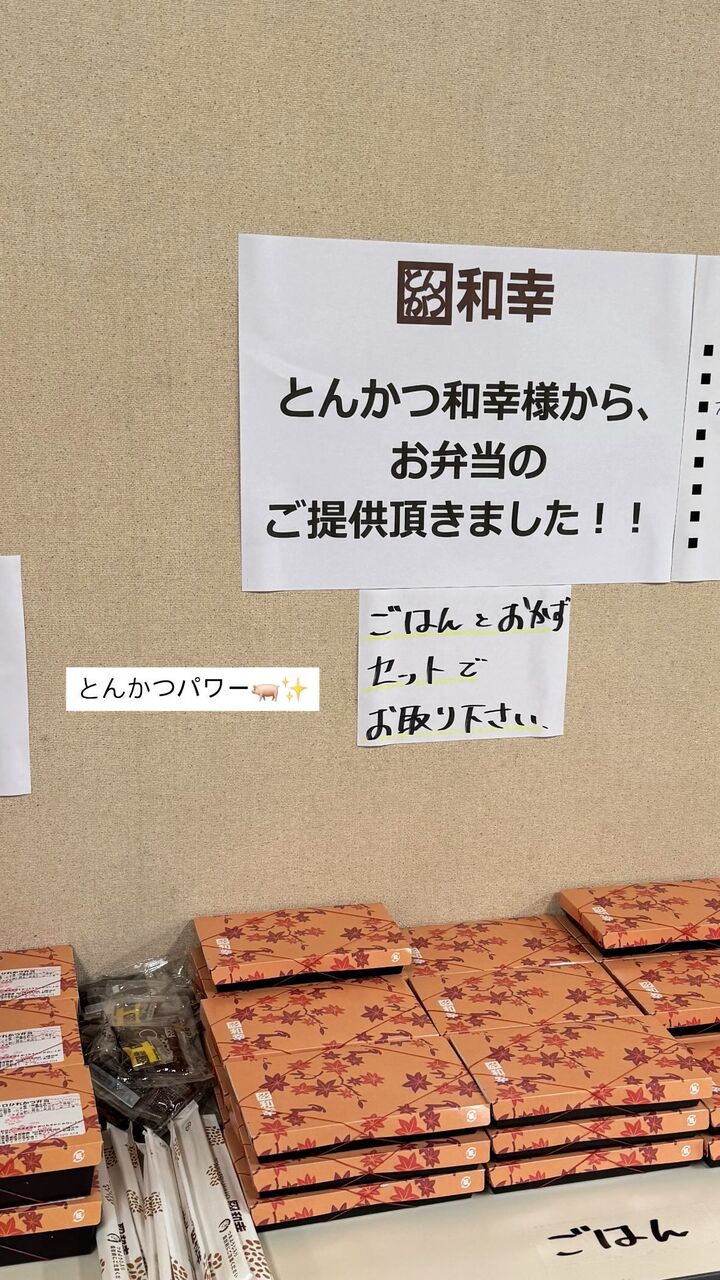 とんかつ 和幸
とんかつ和幸様から、
お弁当の
ご提供頂きました！！
ごはんとおかず
セットで
お取り下さい、
とんかつパワー🐖✨
ごはん